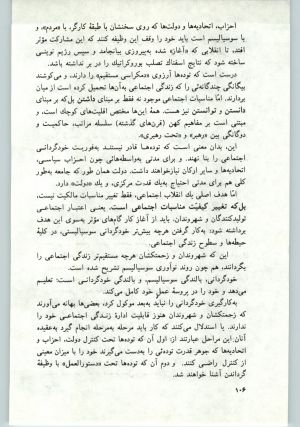 احزاب، اتحادیه‌ها و دولت‌ها که روی سخنشان با طبقهٔ کارگر، با «مردم»، و
یا سوسیالیسم است باید خود را وقف این وظیفه کنند که این مشارکت مؤثر
افتد، تا انقلابی که «آغاز» شده به‌پیروزی بیانجامد و سپس رژیم نوینی
ساخته شود که نتایج اسفناک تصلب بوروکراتیک را در بر نداشته باشد.
درست است که توده‌ها آرزوی «دمکراسی مستقیم» را دارند، و می‌کوشند
بیگانگی چندگانه‌ئی را که زندگی اجتماعی به‌آن‌ها تحمیل کرده است از میان
بردارند. امّا مناسبات اجتماعی موجود نه فقط بر مبنای داشتن بل‌که بر مبنای
دانستن و توانستن نیز هست. همهٔ این‌ها مختص اقلیت‌های کوچک است، و
مبتنی است بر مفاهیم کهن (قرن‌های گذشته) سلسله مراتب، حاکمیت و
دوگانگی بین «رهبر» و «تحت رهبری».
این، بدان معنی است که توده‌ها قادر نیستند به‌فوریت خودگردانی
اجتماعی را بنا نهند. و برای مدتی به‌واسطه‌هائی چون احزاب سیاسی،
اتحادیه‌ها و سایر ارکان نیازخواهند داشت. دولت همان طور که جامعه به‌طور
کلی هم برای مدتی احتیاج به‌یک قدرت مرکزی، و یك «دولت» دارد.
امّا هدف اصلی یك انقلاب اجتماعی، فقط تغییر مناسبات مالکیت نیست،
بل‌که تغییر کیفیّت مناسبات اجتماعی است، یعنی اعتبار اجتماعی
تولیدکنندگان و شهروندان. باید از آغاز کار گام‌های مؤثر به‌سوی این هدف
برداشته شود: به‌کار گرفتن هرچه بیش‌تر خودگردانی سوسیالیستی، در کلیهٔ
حیطه‌ها و سطوح زندگی اجتماعی.
این که شهروندان و زحمتکشان هرچه مستقیم‌تر زندگی اجتماعی را
بگردانند، هم چون روند نوآوری سوسیالیسم تشریح شده است.
خودگردانی، بالندگی سوسیالیسم، و بالندگی خودگردانی است: تعلیم
می‌دهد و خود را در پروسهٔ عمل خود کامل می‌کند.
به‌کارگیری خودگردانی را نباید به‌بعد موکول کرد، بعضی‌ها بهانه می‌آورند
که زحمتکشان و شهروندان هنوز قابلیت ادارهٔ زندگی اجتماعی خود را
ندارند. یا استدلال می‌کنند که کار باید مرحله به‌مرحله انجام گیرد به‌عقیده
آنان این مراحل عبارتند از: اول آن که توده‌ها تحت کنترل دولت، احزاب و
اتحادیه‌ها که جوهر قدرت توده‌ئی را به‌دست می‌گیرند خود را با میزان معینی
از کنترل راضی کنند. و دوم آن که توده‌ها تحت «دستورالعمل» با وظیفهٔ
گرداندن آشنا خواهند شد.
۱۰۶